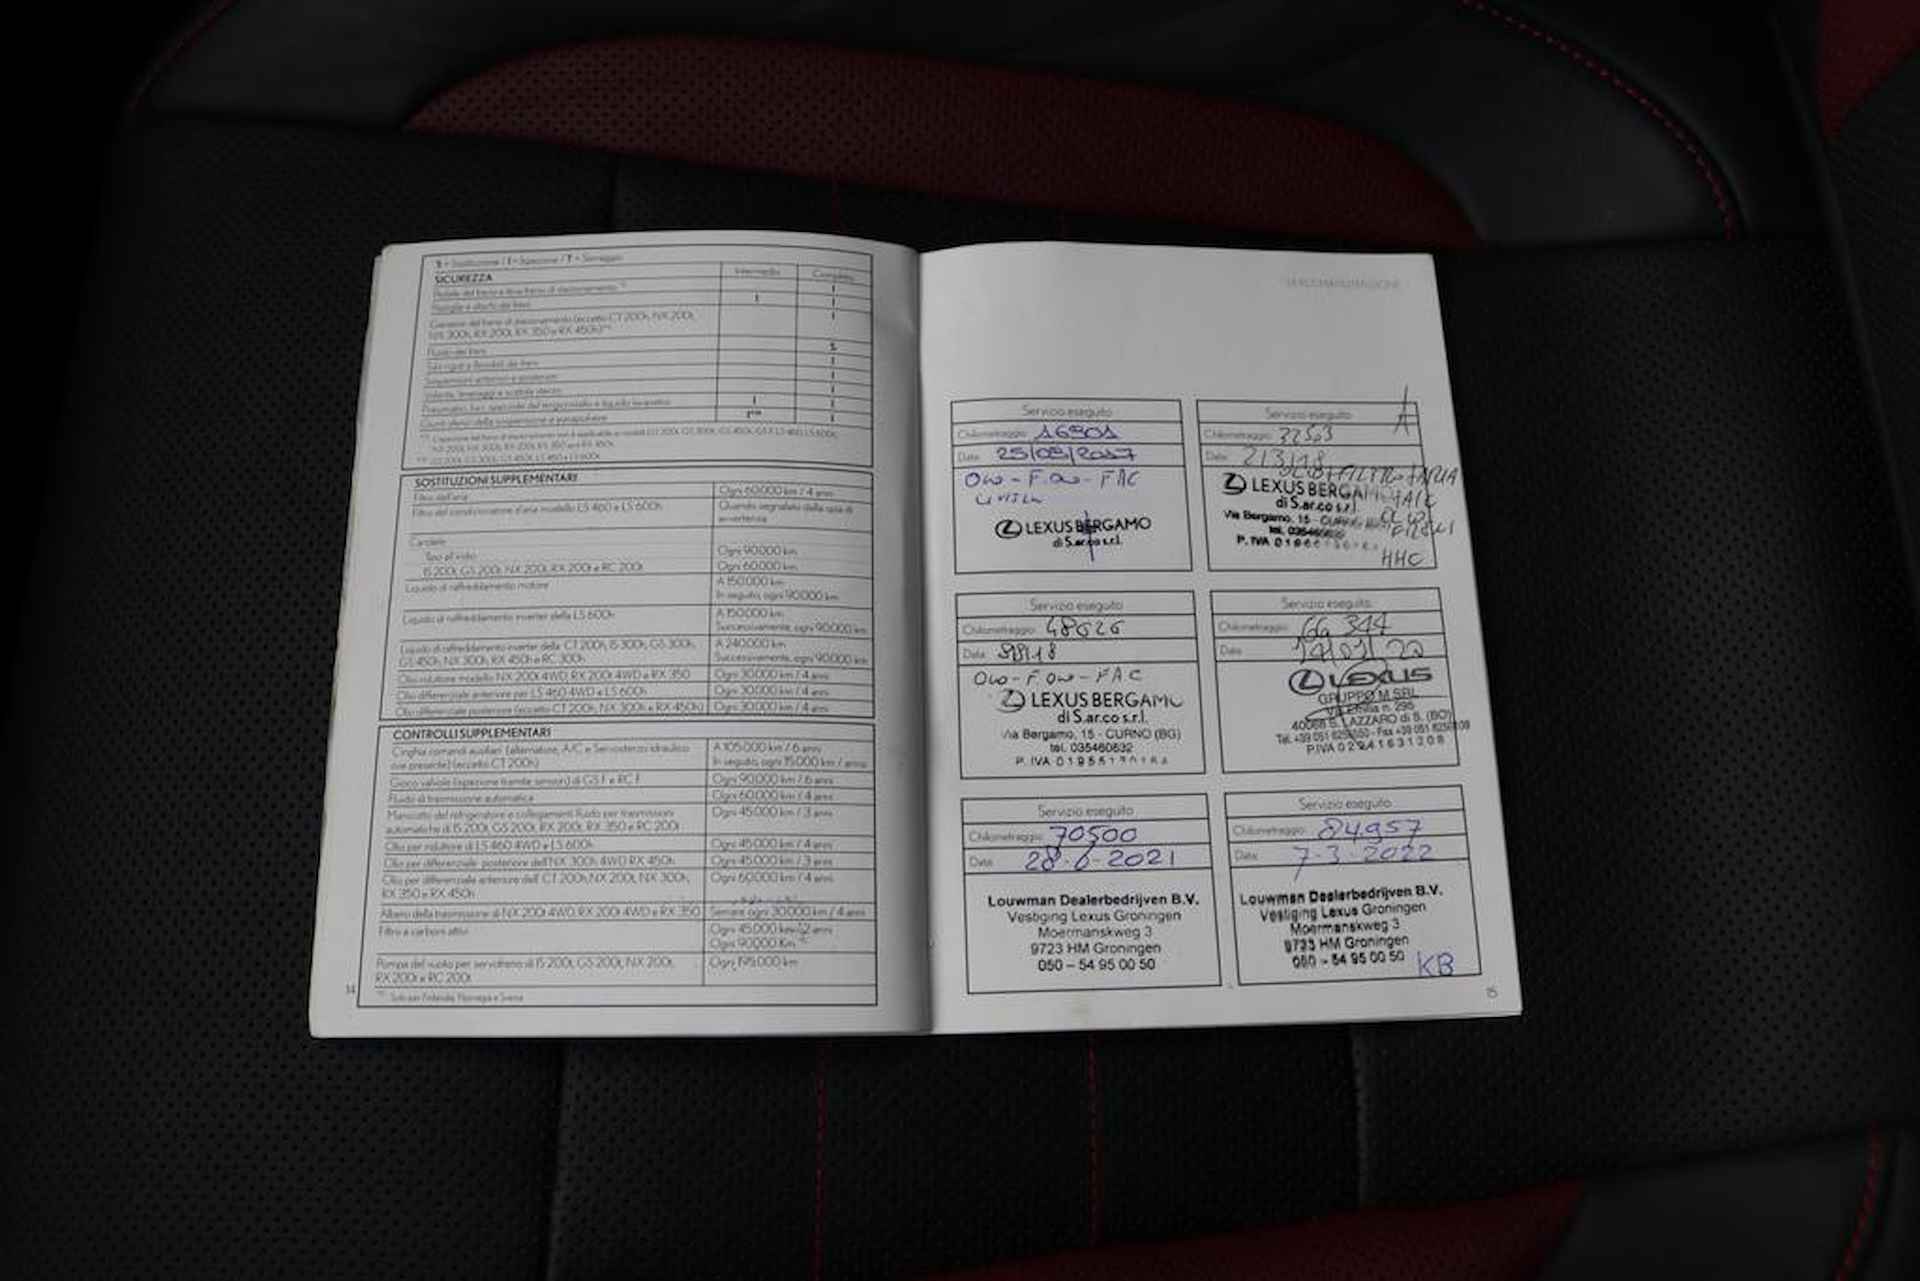 S = Sostituzione / I = Ispezione / T = Serraggio
SICUREZZA
Intermedio Completo
Pedale del freno e leva freno di stazionamento
I
Pastiglie e dischi dei freni
I I
Ganasce del freno di stazionamento (eccetto CT 200h, NX 200t,
NX 300h, RX 200t, RX 350 e RX 450h)
I
Fluido dei freni
S
Tubi rigidi e flessibili dei freni
I
Sospensioni anteriori e posteriori
I
Volante, tiranteggi e scatola sterzo
I
I I
I
SOSTITUZIONI SUPPLEMENTARI
Filtro dell'aria
Ogni 60.000 km / 4 anni
Filtro del condizionatore d'aria modello LS 460 e LS 600h
Quando segnalato dalla spia di
avvertenza
Candele
Tipo all'iridio
Ogni 90.000 km
IS 200t, GS 200t, NX 200t, RX 200t e RC 200t
Ogni 60.000 km
Liquido di raffreddamento motore
A 150.000 km
In seguito, ogni 90.000 km
Liquido di raffreddamento inverter della LS 600h
A 150.000 km
Successivamente, ogni 90.000 km
Liquido di raffreddamento inverter della CT 200h, IS 300h, GS 300h,
GS 450h, NX 300h, RX 450h e RC 300h
A 240.000 km
Successivamente, ogni 90.000 km
Olio riduttore modello NX 200t 4WD, RX 200t 4WD e RX 350
Ogni 30.000 km / 4 anni
Olio differenziale anteriore per LS 460 4WD e LS 600h
Ogni 30.000 km / 4 anni
Olio differenziale posteriore (eccetto CT 200h, NX 300h e RX 450h)
Ogni 30.000 km / 4 anni
CONTROLLI SUPPLEMENTARI
Cinghia comandi ausiliari (alternatore, A/C e Servosterzo idraulico
ove presente) (eccetto CT 200h)
A 105.000 km / 6 anni
In seguito, ogni 15.000 km / anno
Gioco valvole (ispezione tramite sensori) di GS F e RC F
Ogni 90.000 km / 6 anni
Fluido di trasmissione automatica
Ogni 60.000 km / 4 anni
Manicotto del refrigeratore e collegamenti fluido per trasmissioni
automatiche di IS 200t, GS 200t, RX 200t, RX 350 e RC 200t
Ogni 45.000 km / 3 anni
Olio per riduttore di LS 460 4WD e LS 600h
Ogni 45.000 km / 4 anni
Olio per differenziale posteriore dell'NX 300h 4WD RX 450h
Ogni 45.000 km / 3 anni
Olio per differenziale anteriore dell' CT 200h, NX 200t, NX 300h,
RX 350 e RX 450h
Ogni 60.000 km / 4 anni
Albero della trasmissione di NX 200t 4WD, RX 200t 4WD e RX 350
Serrare ogni 30.000 km / 4 anni
Filtro a carboni attivi
Ogni 45.000 km / 2 anni
Ogni 90.000 Km
Pompa del vuoto per servofreno di IS 200t, GS 200t, NX 200t,
RX 200t e RC 200t
Ogni 195.000 km
Solo per Finlandia, Norvegia e Svezia
14
Servizio eseguito
Chilometraggio 16901
Data 25/09/2017
OLIO - F.OLIO - FAC
LEXUS BERGAMO
di S.ar.co s.r.l.
Servizio eseguito
Chilometraggio 32563
Data 2/3/18
LEXUS BERGAMO
di S.ar.co s.r.l.
Via Bergamo, 15 - CURNO
HHC
Servizio eseguito
Chilometraggio 48626
Data
OLIO - F.OLIO - FAC
LEXUS BERGAMO
di S.ar.co s.r.l.
Via Bergamo, 15 - CURNO (BG)
tel. 035460632
P. IVA
Servizio eseguito
Chilometraggio 66 344
Data
LEXUS
GRUPPO M SRL
Via Emilia n. 295
40068 S. LAZZARO di S. (BO)
P.IVA 02941631208
Servizio eseguito
Chilometraggio 70500
Data 28-6-2021
Louwman Dealerbedrijven B.V.
Vestiging Lexus Groningen
Moermanskweg 3
9723 HM Groningen
050 – 54 95 00 50
Servizio eseguito
Chilometraggio 84.957
Data 7-3-2022
Louwman Dealerbedrijven B.V.
Vestiging Lexus Groningen
Moermanskweg 3
9723 HM Groningen
050 – 54 95 00 50
KB
15